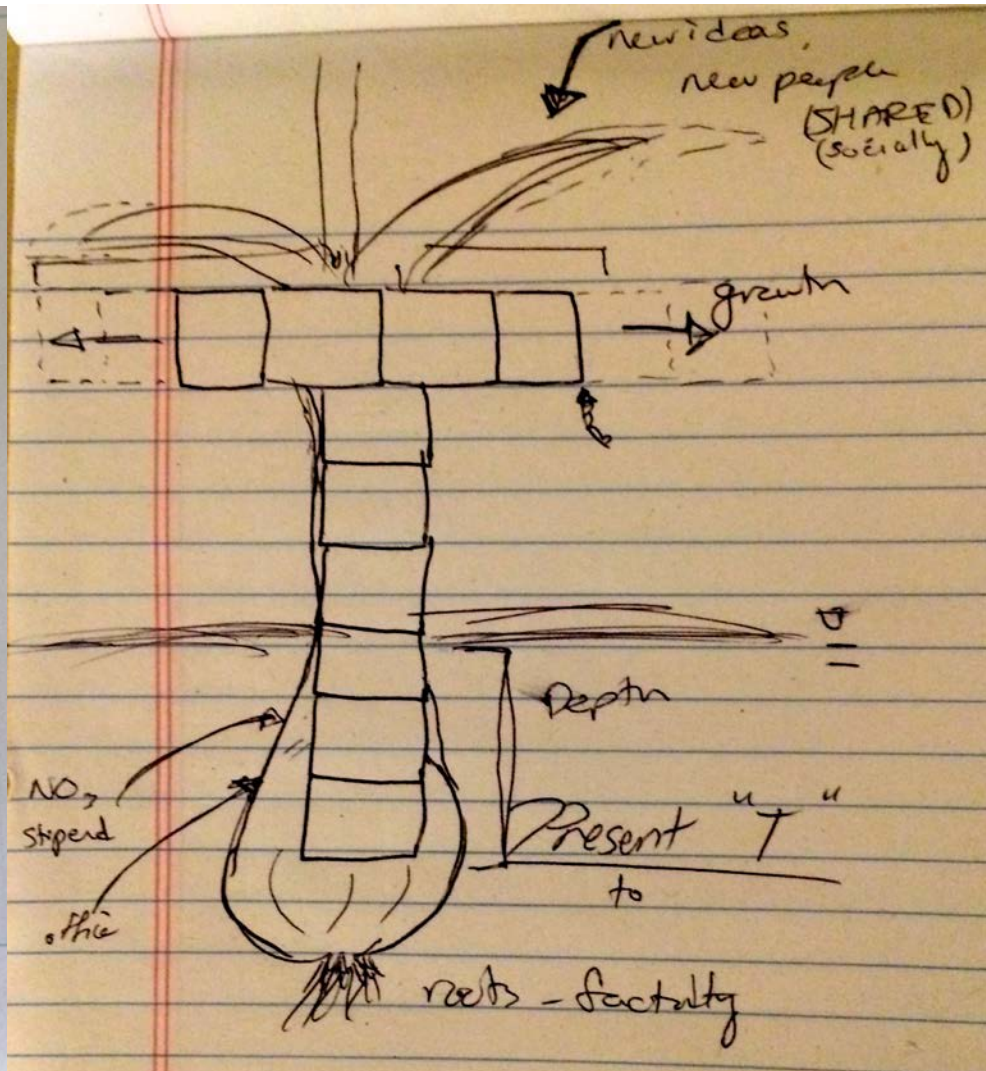 new ideas,
new people
(SHARED)
(socially)
growth
Depth
NO₃
stipend
Present "T"
to
office
roots - factulty